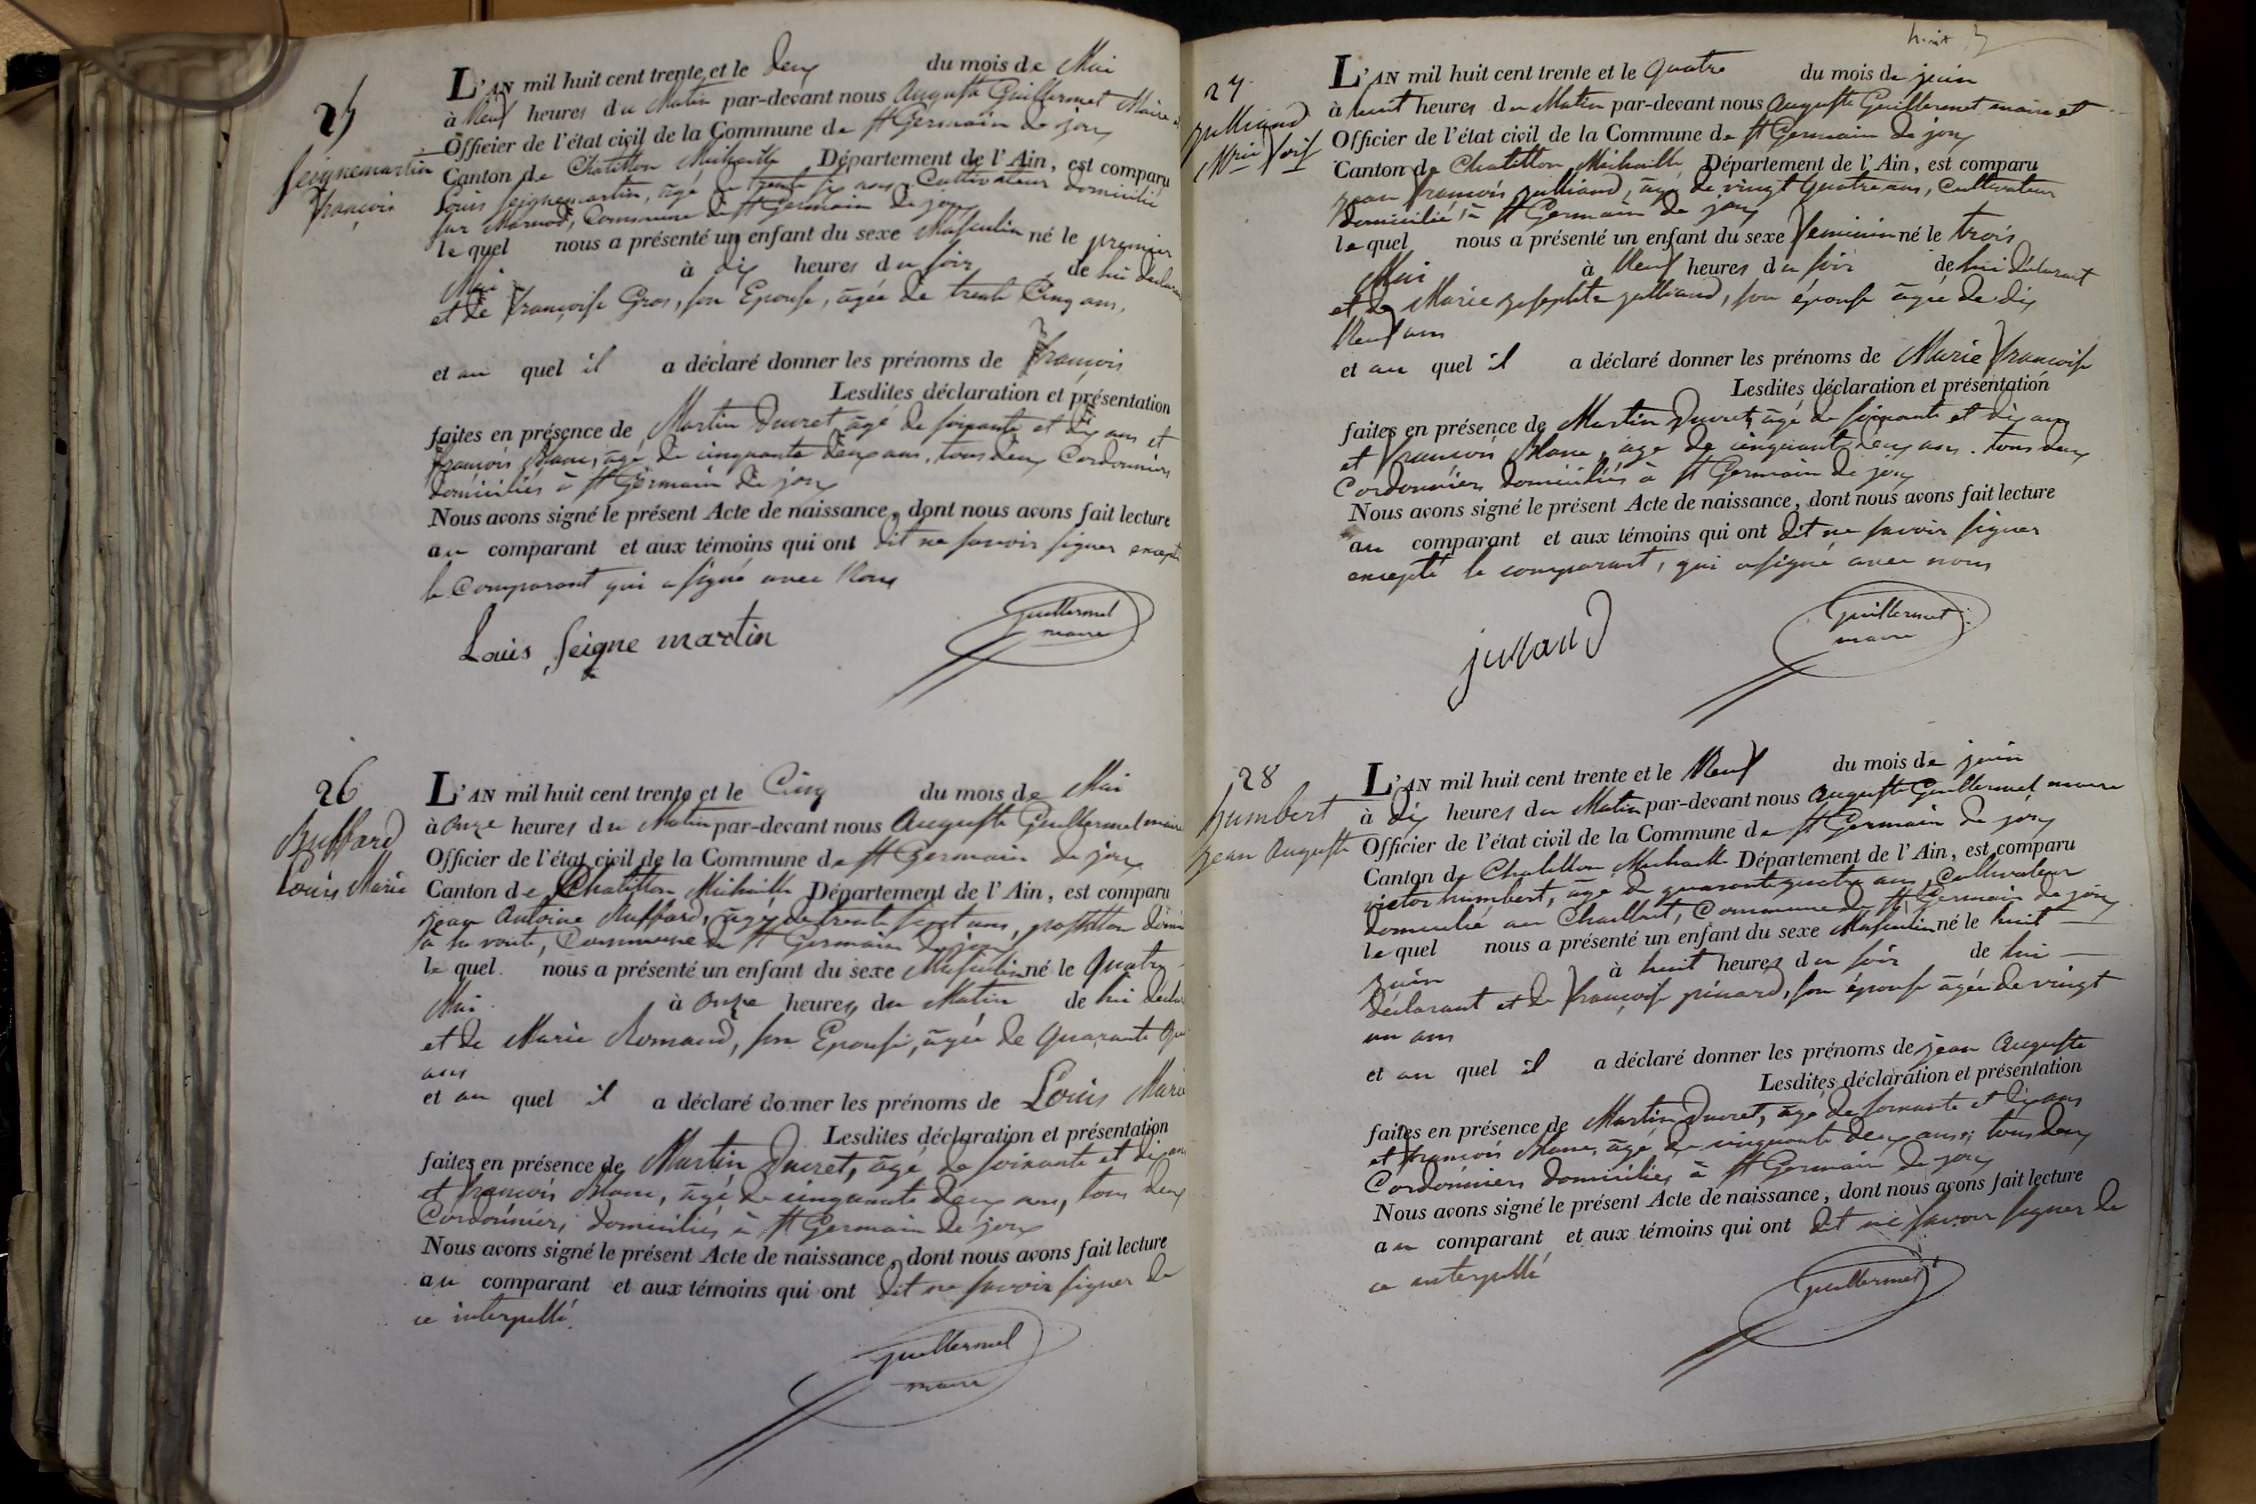 25
Seignemartin
François
L'AN mil huit cent trente et le deux du mois de Mai
à Neuf heures du Matin par-devant nous Auguste Guillermet Maire et
Officier de l'état civil de la Commune de St Germain de joux
Canton de Chatillon Michaille Département de l'Ain, est comparu
Louis Seignemartin, âgé de trente six ans Cultivateur domicilié
sur Marnod, Commune de St Germain de joux
le quel nous a présenté un enfant du sexe Masculin né le premier
Mai à dix heures du soir de lui déclarant
et de Françoise Gros, son Epouse, âgée de trente Cinq ans,
et au quel il a déclaré donner les prénoms de François
Lesdites déclaration et présentation
faites en présence de Martin Ducret âgé de soixante et dix ans et
François Blanc, âgé de cinquante deux ans, tous deux Cordonniers
domiciliés à St Germain de joux
Nous avons signé le présent Acte de naissance, dont nous avons fait lecture
au comparant et aux témoins qui ont dit ne savoir signer excepté
le Comparant qui a signé avec Nous
Louis Seigne martin
Guillermet
maire
26
Buffard
Louis Marie
L'AN mil huit cent trente et le Cinq du mois de Mai
à onze heures du Matin par-devant nous Auguste Guillermet maire
Officier de l'état civil de la Commune de St Germain de joux
Canton de Chatillon Michaille Département de l'Ain, est comparu
jean Antoine Buffard, âgé de trente sept ans, postillon domi
à la voute, Commune de St Germain de joux
le quel nous a présenté un enfant du sexe Masculin né le Quatre
Mai à onze heures du Matin de lui décla
et de Marie Romand, son Epouse, âgée de Quarante
ans
et au quel il a déclaré donner les prénoms de Louis Marie
Lesdites déclaration et présentation
faites en présence de Martin Ducret, âgé de soixante et dix ans
et François Blanc, âgé de cinquante deux ans, tous deux
Cordonniers domiciliés à St Germain de joux
Nous avons signé le présent Acte de naissance, dont nous avons fait lecture
au comparant et aux témoins qui ont dit ne savoir signer de
ce interpellé.
Guillermet
maire
huit
27
julliand
Mrie Foise
L'AN mil huit cent trente et le Quatre du mois de juin
à huit heures du Matin par-devant nous Auguste Guillermet maire et
Officier de l'état civil de la Commune de St Germain de joux
Canton de Chatillon Michaille Département de l'Ain, est comparu
jean François julliand, âgé de vingt Quatre ans, Cultivateur
domicilié à St Germain de joux
le quel nous a présenté un enfant du sexe Feminin né le trois
Mai à Neuf heures du soir de lui déclarant
et de Marie josephte julliand, son épouse âgée de dix
Neuf ans
et au quel il a déclaré donner les prénoms de Marie Françoise
Lesdites déclaration et présentation
faites en présence de Martin Ducret, âgé de soixante et dix ans
et François Blanc, âgé de cinquante deux ans. tous deux
Cordonniers domiciliés à St Germain de joux
Nous avons signé le présent Acte de naissance, dont nous avons fait lecture
au comparant et aux témoins qui ont dit ne savoir signer
excepté le comparant, qui a signé avec nous
Guillermet
maire
28
humbert
jean Auguste
L'AN mil huit cent trente et le Neuf du mois de juin
à dix heures du Matin par-devant nous Auguste Guillermet maire
Officier de l'état civil de la Commune de St Germain de joux
Canton de Chatillon Michaille Département de l'Ain, est comparu
victor humbert, âgé de quarante quatre ans, Cultivateur
domicilié au Commune de St Germain de joux
le quel nous a présenté un enfant du sexe Masculin né le huit
juin à huit heures du soir de lui
déclarant et de Françoise pinard, son épouse âgée de vingt
un ans
et au quel il a déclaré donner les prénoms de jean Auguste
Lesdites déclaration et présentation
faites en présence de Martin Ducret, âgé de soixante et dix ans
et François Blanc, âgé de cinquante deux ans, tous deux
Cordonniers domiciliés à St Germain de joux
Nous avons signé le présent Acte de naissance, dont nous avons fait lecture
au comparant et aux témoins qui ont dit ne savoir signer de
ce interpellé
Guillermet